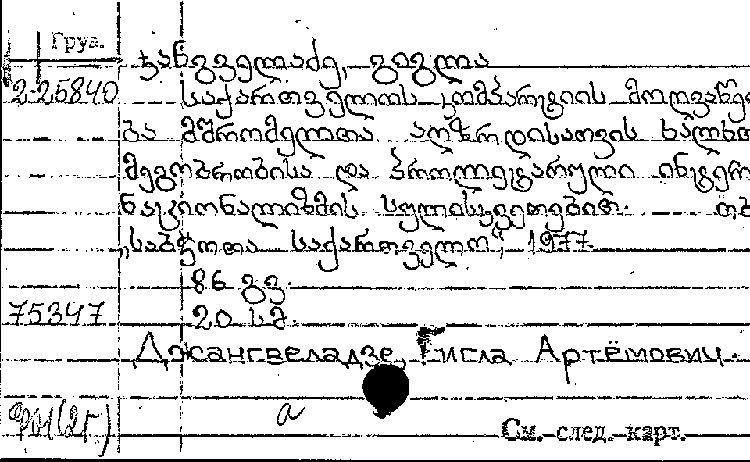 Груз.
ჯანგველაძე, გიგლა
2-25840 საქართველოს კომპარტიის მოღვაწეო
ბა მშრომელთა აღზრდისათვის ხალხთ
მეგობრობისა და პროლეტარული ინტერ
ნაციონალიზმის სულისკვეთებით. თბ
„საბჭოთა საქართველო“, 1977
86 გვ.
75347 20 სმ.
Джангвеладзе, Гигла Артёмович.
a
См. след. карт.